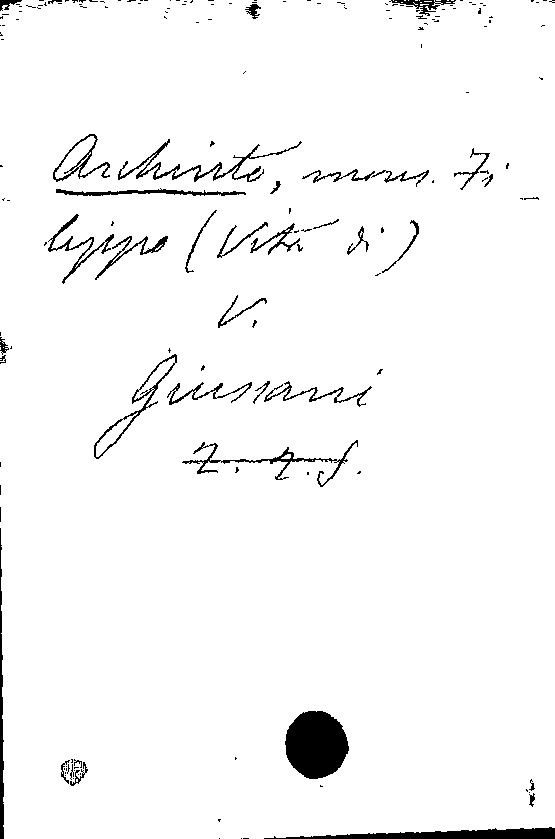 Archinto, mons. Fi
lippo (Vita di)
V.
Giussani